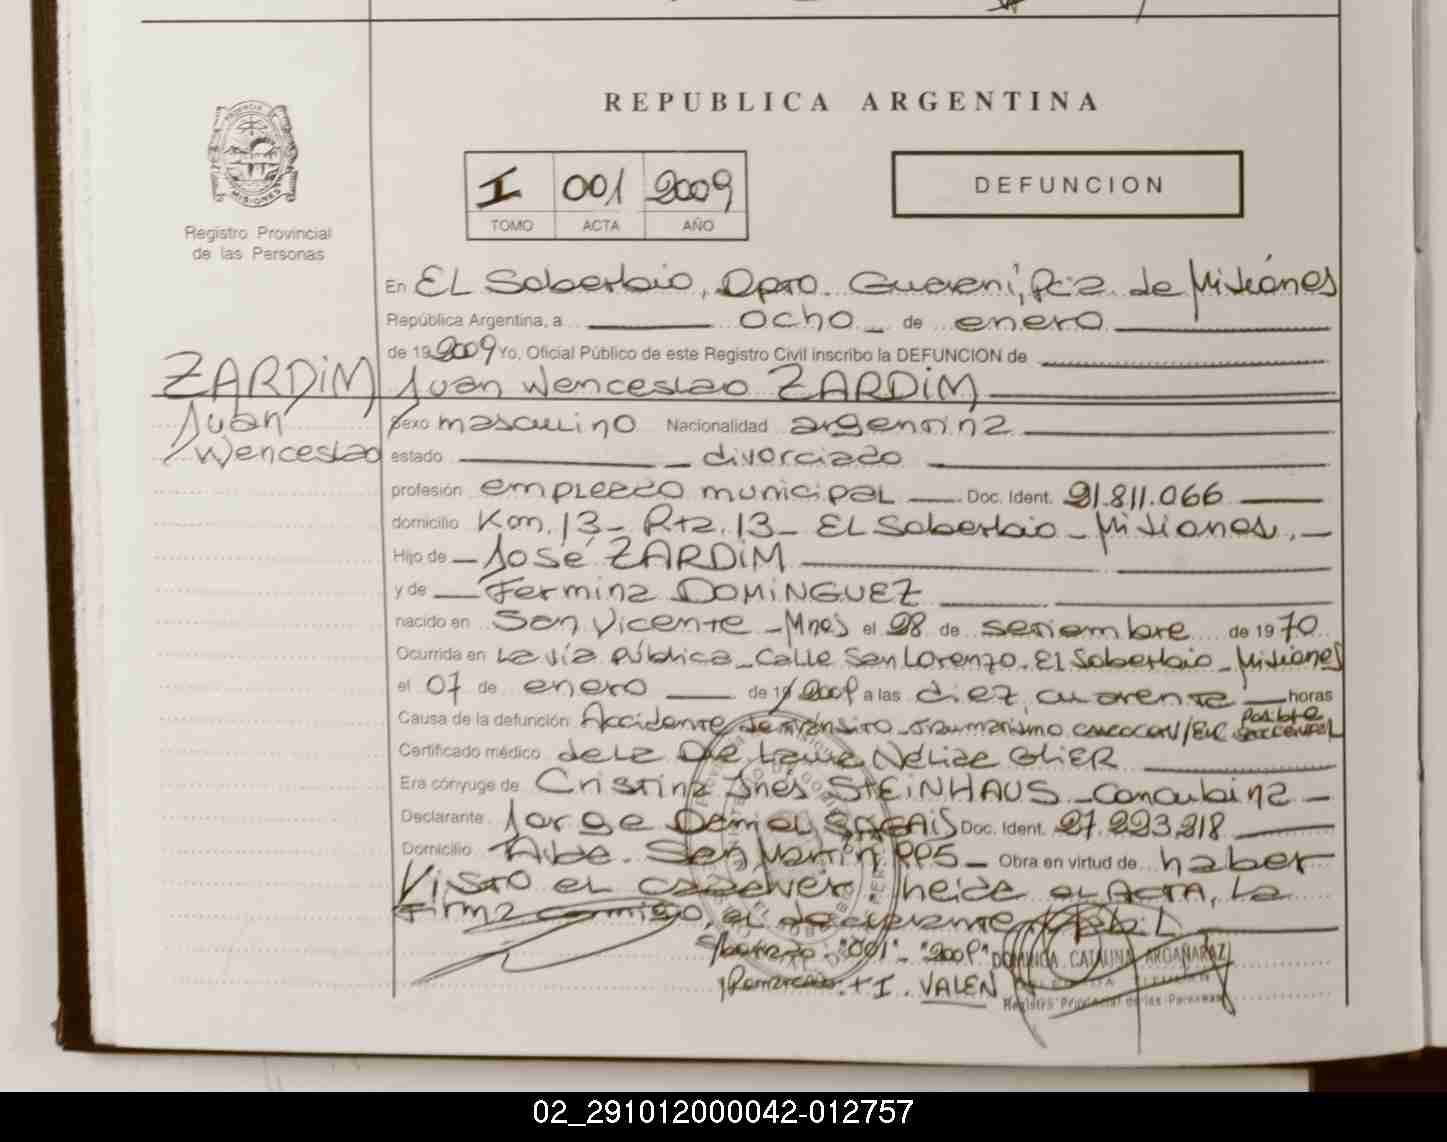 REPUBLICA ARGENTINA
I 001 2009
TOMO ACTA AÑO
DEFUNCION
MISIONES
Registro Provincial
de las Personas
En EL Soberbio, Dpto. Guarani, Pcia. de Misiones
República Argentina, a ocho de enero
de 19 2009 Yo, Oficial Público de este Registro Civil inscribo la DEFUNCION de
ZARDiM Juan Wenceslao ZARDiM
Juan
Wenceslao
Sexo masculino Nacionalidad argentina
estado divorciado
profesión empleado municipal Doc. Ident. 21.811.066
domicilio Km. 13 - Rta. 13 - EL Soberbio - Misiones.
Hijo de José ZARDiM
y de Fermina DOMiNGUEZ
nacido en San Vicente - Mnes el 28 de setiembre de 1970
Ocurrida en La vía Pública - Calle San Lorenzo - EL Soberbio - Misiones
el 07 de enero de 19 2009 a las diez, cuarenta horas
Causa de la defunción Accidente de tránsito - traumatismo posible
Certificado médico de La Dra Laura GLiER
Era cónyuge de Cristina Inés STEiNHAUS - Concubina
Declarante Jorge Doc. Ident. 27.223.218
Domicilio Avda. San Martín Obra en virtud de haber
Visto el cadaver, leida el ACTA, La
firma conmigo, el declarante
S/borrado: "001" - "2009" DOMINGA CATALINA ARGAÑARAZ
+ I. VALEN
Registro Provincial de las Personas
02_291012000042-012757